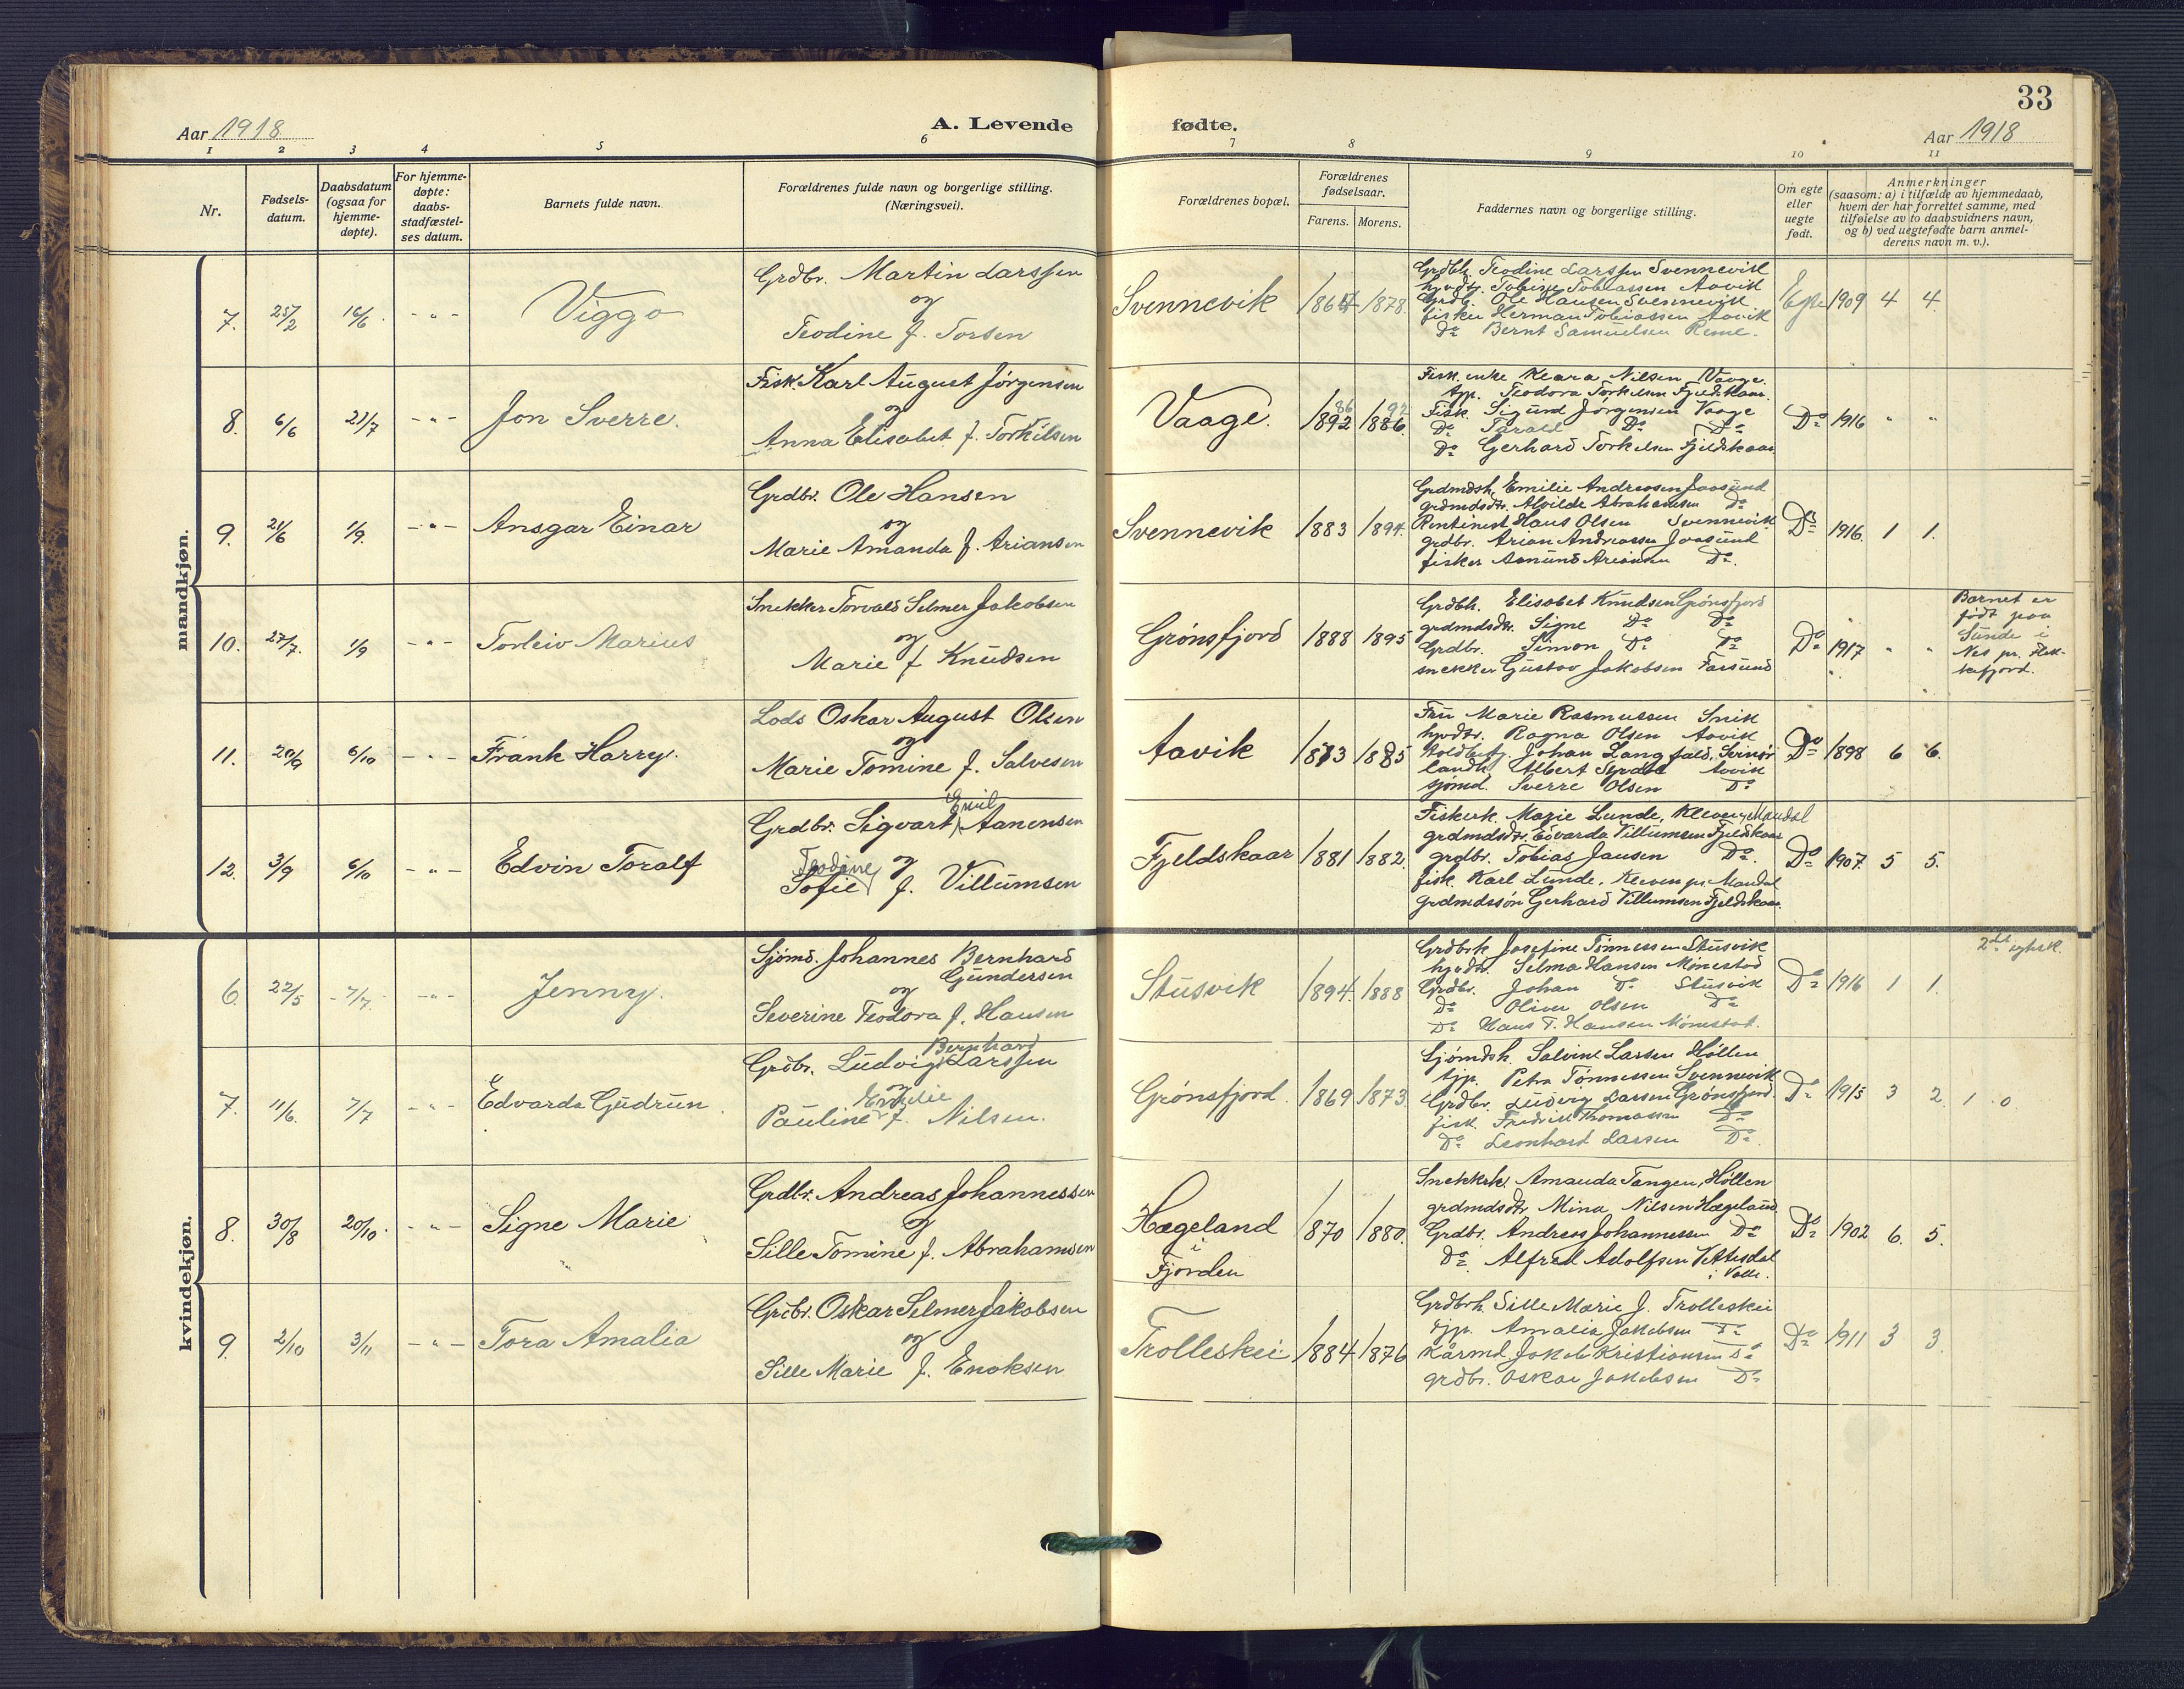 33
Aar 1918
A. Levende
fødte.
Aar 1918
1 2 3 4 5 6 7 8 9 10 11
Nr.
Fødsels-
datum.
Daabsdatum
(ogsaa for
hjemme-
døpte).
For hjemme-
døpte:
daabs-
stadfæstel-
ses datum.
Barnets fulde navn.
Forældrenes fulde navn og borgerlige stilling.
(Næringsvei).
Forældrenes bopæl.
Forældrenes
fødselsaar.
Farens. Morens.
Faddernes navn og borgerlige stilling.
Om egte
eller
uegte
født.
Anmerkninger
(saasom: a) i tilfælde av hjemmedaab,
hvem der har forrettet samme, med
tilføielse av to daabsvidners navn,
og b) ved uegtefødte barn anmel-
derens navn m. v.).
mandkjøn.
7. 25/2 16/6. - " - Viggo
Grdbr. Martin Larssen
og
Teodine f. Torsen
Svennevik 1864 1878.
Grdbh. Teodine Larssen Svennevik
hyrdtr. Tobine Tobiassen Aavik
Grdb. Ole Hansen Svennevik
fisker Herman Tobiassen Aavik
Do Bernt Samuelsen Reme.
Egte 1909 4 4.
8. 6/6 21/7 - " - Jon Sverre.
Fisk. Karl August Jørgensen
og
Anna Elisabet f. Torkilsen
Vaage. 1892 86 1886. 92
Fisk. enke Klara Nilsen Vaage.
tjp. Teodora Torkelsen Fjeldskaar.
Fisk. Sigurd Jørgensen Vaage
Do Torald Do Do
Do Gerhard Torkelsen Fjeldskaar
Do 1916 " "
9. 21/6 1/9. - " - Ansgar Einar
Grdbr. Ole Hansen
og
Marie Amanda f. Ariansen
Svennevik 1883 1894.
Grdmdsh. Emilie Andreasen Jaasund
grdmdsdtr. Alvilde Abrahamsen Do
Rentinest Hans Olsen Svennevik
grdbr. Arian Andreassen Jaasund
fisker Asmund Ariansen Do.
Do 1916. 1 1.
10. 27/7. 1/9 - " - Torleiv Marius
Snekker Torvald Selmer Jakobsen
og
Marie f Knudsen
Grønsfjord 1888 1895
Grdbh. Elisabet Knudsen Grønsfjord
grdmdsdtr. Signe Do Do
Grdbr. Simon Do Do
snekker Gustav Jakobsen Farsund
Do 1917 " "
Barnet er
født paa
Sunde i
Nes pr. Flek-
kefjord.
11. 20/9 6/10 - " - Frank Harry.
Lods Oskar August Olsen
og
Marie Tomine f. Salvesen
Aavik 1873 1885
Fru Marie Rasmussen Snik
hyrdtr. Ragna Olsen Aavik
Toldbetj. Johan Langfald, Svinør
landh. Albert Syrdal Aavik
sjømd. Sverre Olsen Do
Do 1898 6 6.
12. 3/9 6/10 - " - Edvin Toralf
Grdbr. Sigvart Emil Aanensen
og
Teodine
Sofie f. Villumsen
Fjeldskaar 1881 1882.
Fiskerk. Marie Lunde, Kleven pr. Mandal
grdmdsdtr. Edvarda Villumsen Fjeldskaar
grdbr. Tobias Jansen Do.
fisk. Karl Lunde, Kleven pr. Mandal
grdmdssøn Gerhard Villumsen Fjeldskaar.
Do 1907. 5 5.
kvindekjøn.
6. 22/5 - 7/7. - " - Jenny.
Sjømd. Johannes Bernhard
Gundersen
og
Severine Teodora f. Hansen
Stusvik 1894. 1888
Grdbrk Josefine Tønnessen Stusvik
hyrdtr. Selma Hansen Mønestad
Grdbr. Johan Do Stusvik
Do Oliver Olsen Do
Do Hans T. Hansen Mønestad.
Do 1916 1 1.
2det egtsk.
7. 11/6. 7/7 - " - Edvarda Gudrun.
Grdbr. Ludvig Bernhard Larssen
og
Emilie
Pauline f. Nilsen.
Grønsfjord. 1869 1873.
Sjømdsh. Salvine Larsen Høllen
tjp. Petra Tønnessen Svennevik
Grdbr. Ludvig Larsen Grønsfjord.
fisk. Fredrik Thomassen Do
Do Leonhard Larsen Do.
Do 1915 3 2. 1. 0
8. 30/8 20/10. - " - Signe Marie
Grdbr. Andreas Johannessen
og
Sille Tomine f. Abrahamsen
Hægeland
i
Fjorden
1870 1880.
Snekkerh. Amanda Tangen, Høllen
grdmdsdtr Mina Nilsen Hægeland
Grdbr. Andreas Johannessen Do
Do. Alfred Adolfsen Vittesdal
i Valle.
Do 1902 6. 5.
9. 2/10 3/11 - " - Tora Amalia
Grdbr. Oskar Selmer Jakobsen
og
Sille Marie f. Enoksen
Trolleskei 1884 1876
Grdbrh. Sille Marie J. Trolleskei
tjp. Amalia Jakobsen Do
Kårmd Jakob Kristiansen Do
grdbr. Oskar Jakobsen Do
Do 1911 3 3.